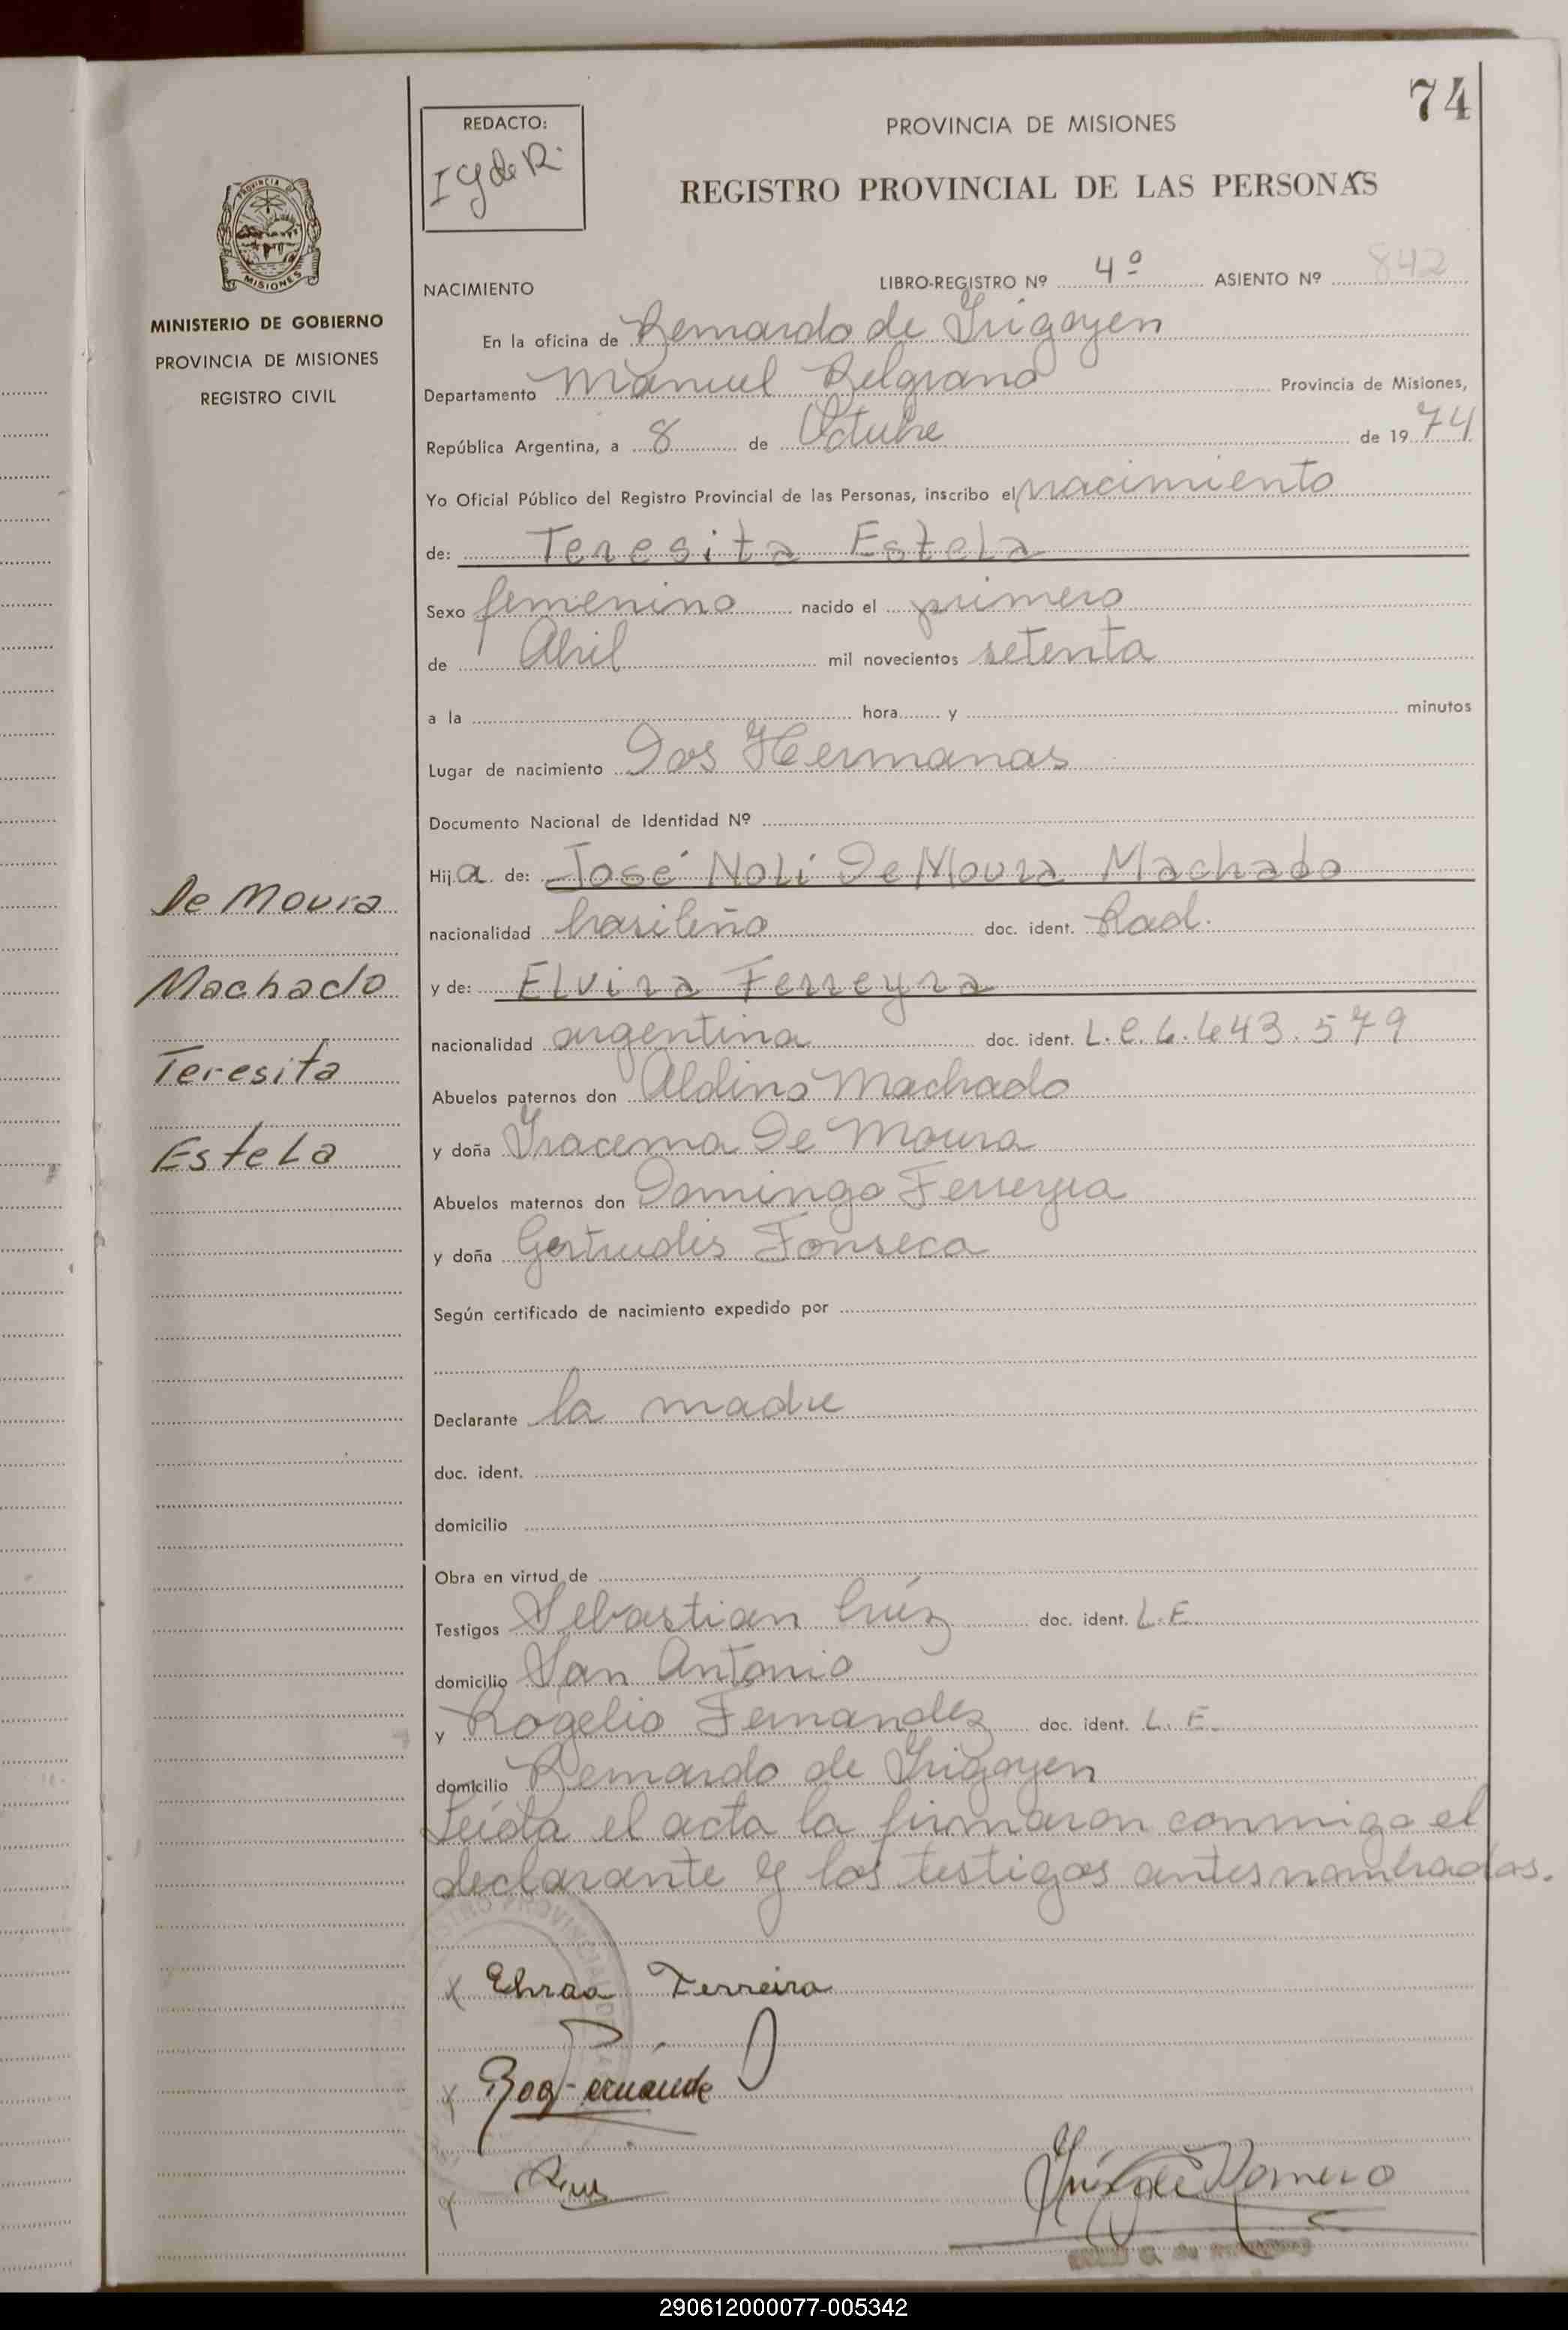 74
REDACTO:
I G de R.
PROVINCIA DE MISIONES
REGISTRO PROVINCIAL DE LAS PERSONAS
PROVINCIA
MISIONES
MINISTERIO DE GOBIERNO
PROVINCIA DE MISIONES
REGISTRO CIVIL
NACIMIENTO LIBRO-REGISTRO Nº 4º ASIENTO Nº 842
En la oficina de Bernardo de Irigoyen
Departamento Manuel Belgrano Provincia de Misiones,
República Argentina, a 8 de Octubre de 1974
Yo Oficial Público del Registro Provincial de las Personas, inscribo el nacimiento
de: Teresita Estela
Sexo femenino nacido el primero
de Abril mil novecientos setenta
a la hora y minutos
Lugar de nacimiento Dos Hermanas
Documento Nacional de Identidad Nº
Hija de: José Noli De Moura Machado
De Moura
nacionalidad brasileño doc. ident. Rad.
Machado
y de: Elvira Ferreyra
nacionalidad argentina doc. ident. L.C. 6.643.579
Teresita
Abuelos paternos don Aldino Machado
y doña Iracema De Moura
Estela
Abuelos maternos don Domingo Ferreyra
y doña Gertrudis Fonseca
Según certificado de nacimiento expedido por
Declarante la madre
doc. ident.
domicilio
Obra en virtud de
Testigos Sebastian doc. ident. L.E.
domicilio San Antonio
y Rogelio Fernandez doc. ident. L.E.
domicilio Bernardo de Irigoyen
Leída el acta la firmaron conmigo el
declarante y los testigos antes nombrados.
Ferreira
de Romero
290612000077-005342